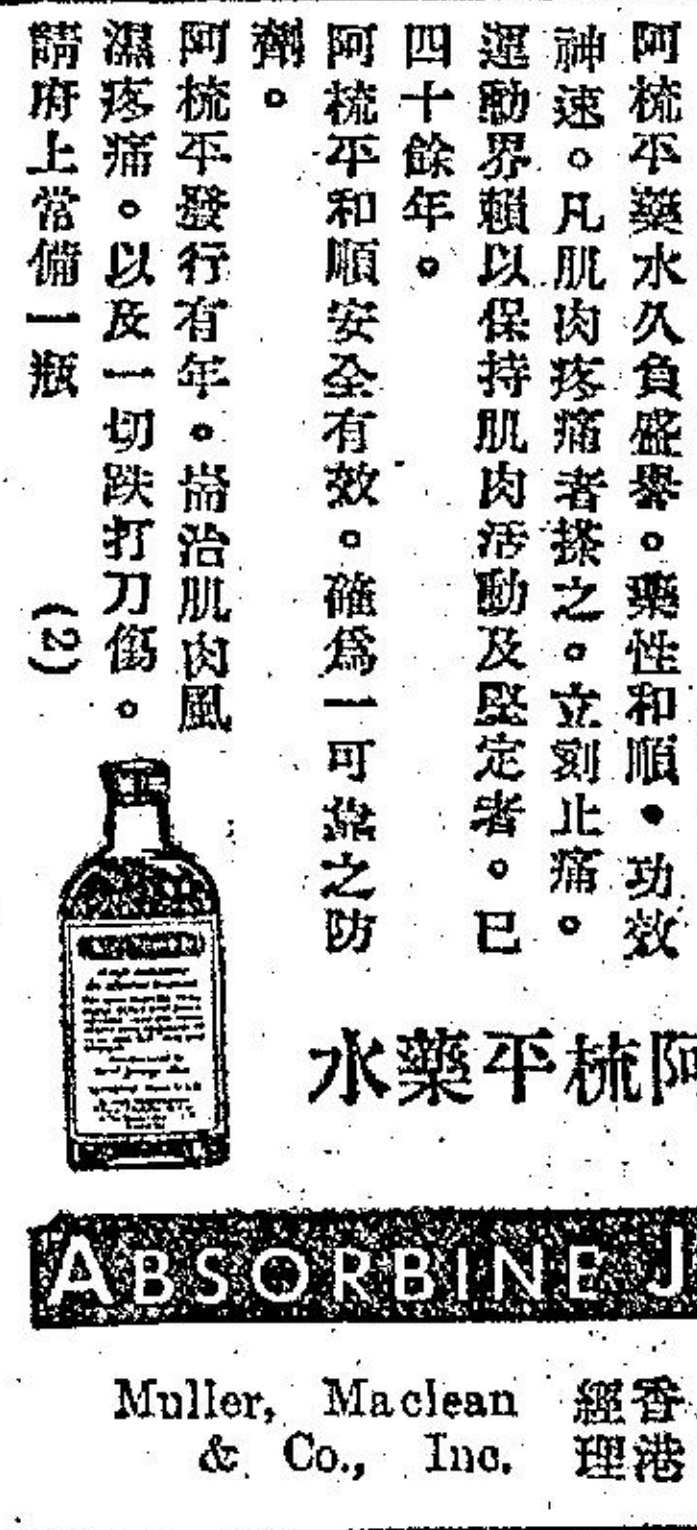 阿梳平藥水久負盛譽。藥性和順。功效
神速。凡肌肉疼痛者搽之。立刻止痛。
運動界賴以保持肌肉活動及堅定者。已
四十餘年。
阿梳平和順安全有效。確爲一可靠之防
劑。
阿梳平發行有年。耑治肌肉風
濕疼痛。以及一切跌打刀傷。
請府上常備一瓶 (2)
阿梳平藥水
ABSORBINE J
香港
經理
Muller, Maclean
& Co., Inc.